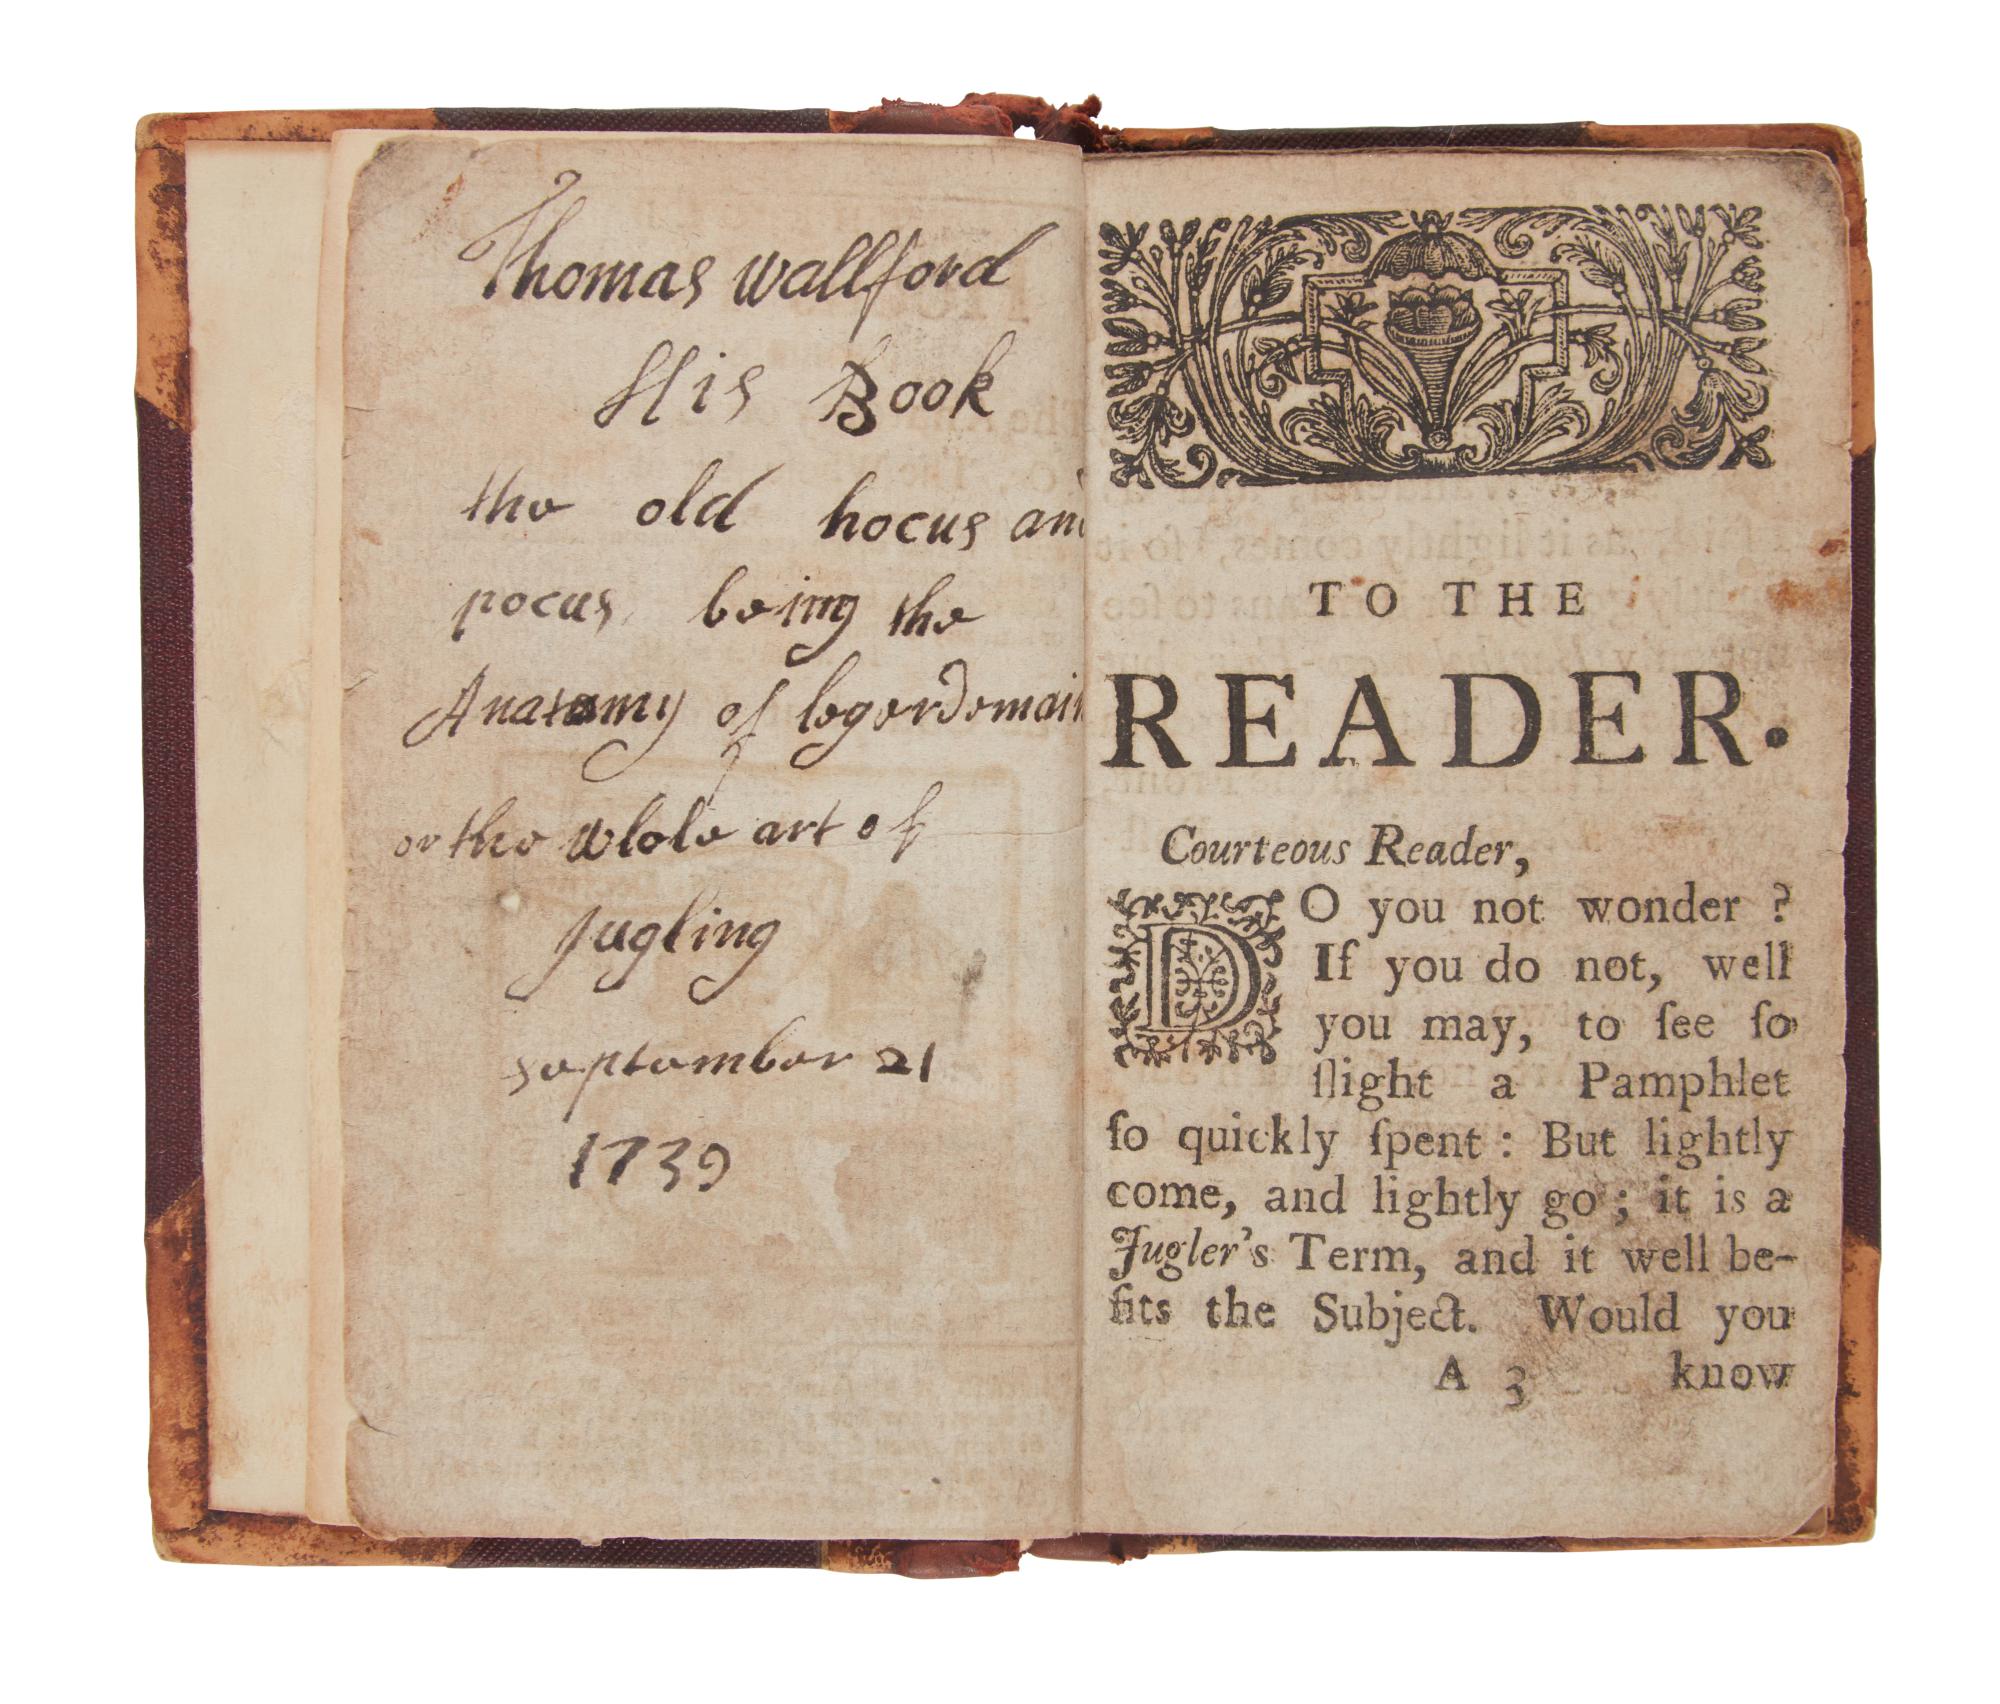 Thomas wallford
His Book
the old hocus and
pocus being the
Anatomy of legerdemain
or the wlole art of
Jugling
september 21
1739
TO THE
READER.
Courteous Reader,
DO you not wonder ?
If you do not, well
you may, to ſee ſo
ſlight a Pamphlet
ſo quickly ſpent : But lightly
come, and lightly go ; it is a
Jugler's Term, and it well be-
fits the Subject. Would you
A 3 know